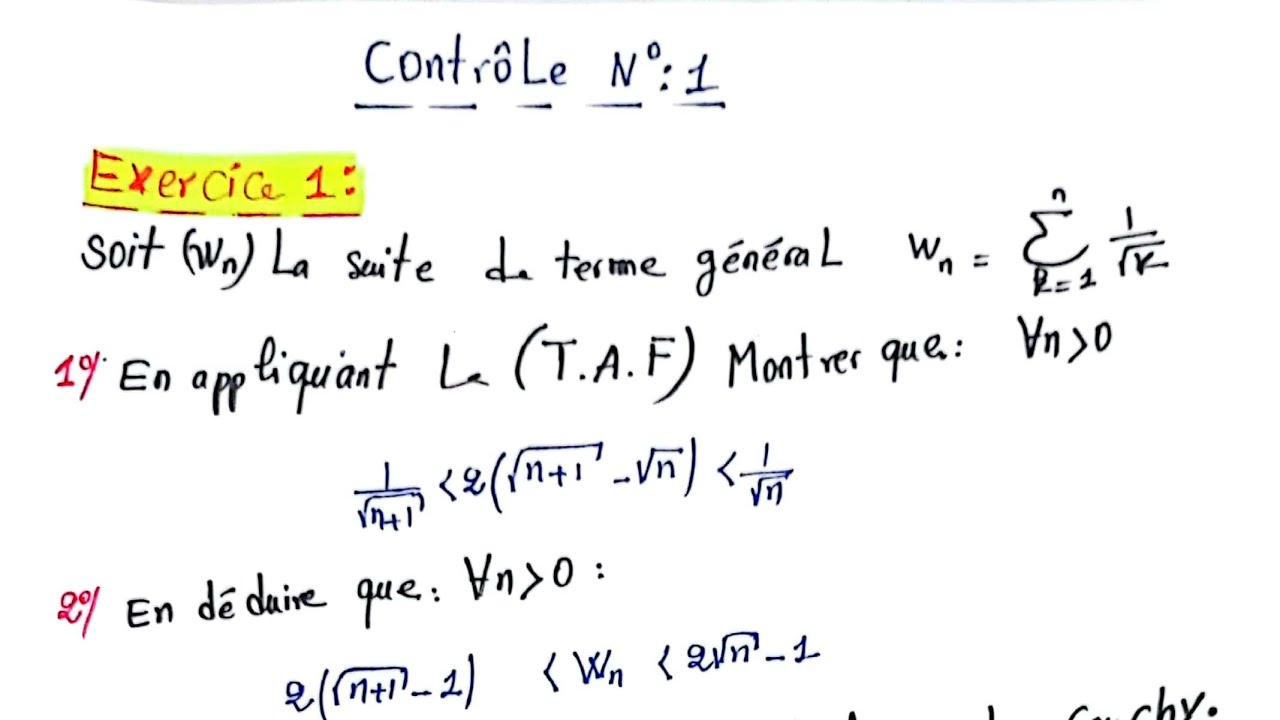 Contrôle N°: 1
Exercice 1:
Soit (Wn) La suite de terme général Wn = ∑_{k=1}^{n} 1/√k
1°/ En appliquant Le (T.A.F) Montrer que: ∀n>0
1/√(n+1) < 2(√(n+1) - √n) < 1/√n
2°/ En déduire que: ∀n>0 :
2(√(n+1) - 1) < Wn < 2√n - 1